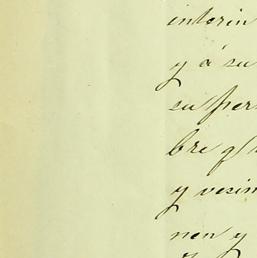 interin
y á su
su per
bre q
y vesin
nen y